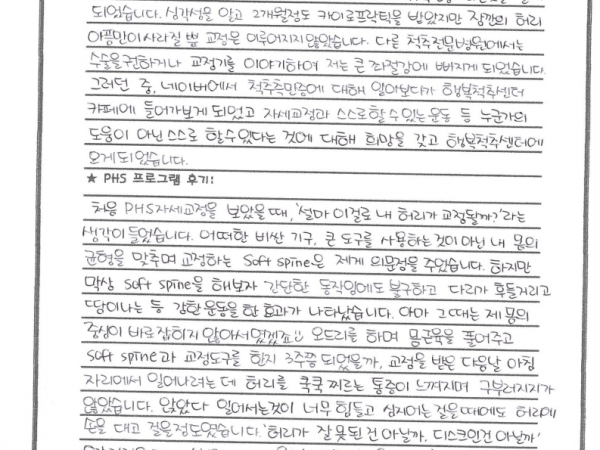 되었습니다. 심각성을 알고 2개월정도 카이로프락틱을 받았지만 잠깐의 허리
아픔만이 사라질 뿐 교정은 이루어지지 않았습니다. 다른 척추전문병원에서는
수술을 권하거나 교정기를 이야기하여 저는 큰 좌절감에 빠지게 되었습니다.
그러던 중, 네이버에서 척추측만증에 대해 알아보다가 행복척추센터
카페에 들어가보게 되었고 자세교정과 스스로 할 수 있는 운동 등 누군가의
도움이 아닌 스스로 할 수 있다는 것에 대해 희망을 갖고 행복척추센터에
오게 되었습니다.
★ PHS 프로그램 후기:
처음 PHS자세교정을 보았을 때, '설마 이걸로 내 허리가 교정될까?'라는
생각이 들었습니다. 어떠한 비싼 기구, 큰 도구를 사용하는 것이 아닌 내 몸의
균형을 맞추며 교정하는 Soft spine은 제게 의문점을 주었습니다. 하지만
막상 soft spine을 해보자 간단한 동작임에도 불구하고 다리가 후들거리고
땀이나는 등 강한 운동을 한 효과가 나타났습니다. 아마 그때는 제 몸의
중심이 바로잡히지 않아서였겠죠!! 오드리를 하며 몸근육을 풀어주고
soft spine과 교정도구를 한지 3주쯤 되었을까, 교정을 받은 다음날 아침
자리에서 일어나려는 데 허리를 쿡쿡 찌르는 통증이 느껴지며 구부러지지가
않았습니다. 앉았다 일어서는것이 너무 힘들고 심지어는 걸을 때에도 허리에
손을 대고 걸을정도였습니다. '허리가 잘못된 건 아닐까, 디스크인건 아닐까'